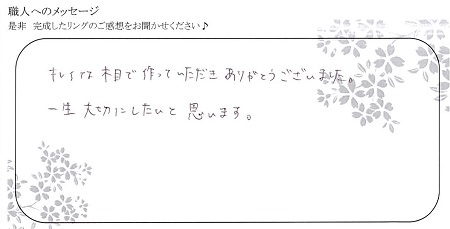 職人へのメッセージ
是非　完成したリングのご感想をお聞かせください♪
キレイな木目で作っていただきありがとうございました。
一生大切にしたいと思います。